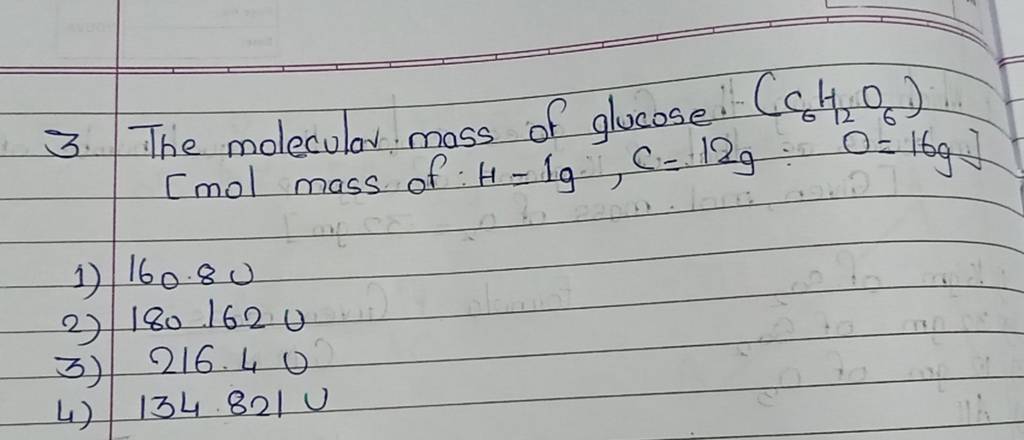 3. The molecular mass of glucose (C6H12O6)
[mol mass of : H = 1g, C = 12g : O = 16g]
1) 160.8 U
2) 180.162 U
3) 216.4 U
4) 134.821 U